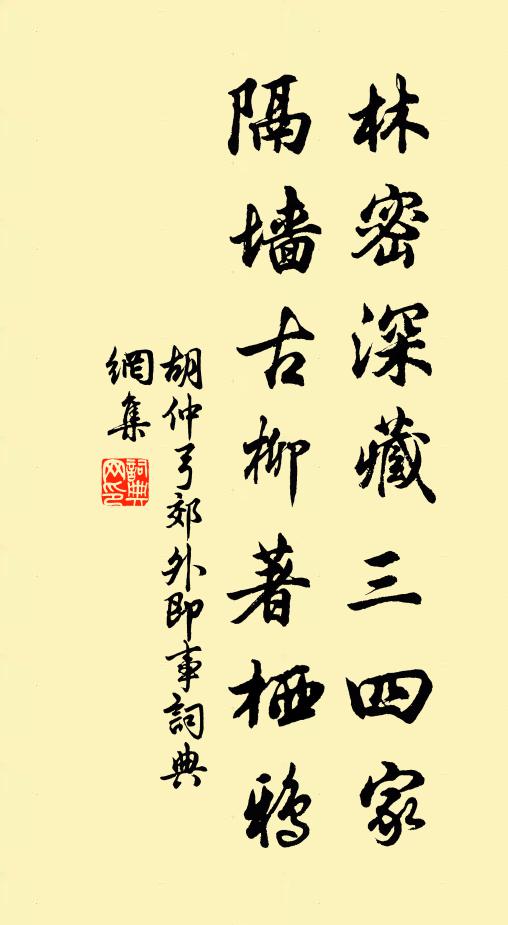 林密深藏三四家
隔墙古柳著栖鸦
胡仲弓郊外即事詞典
網集
詞典網印